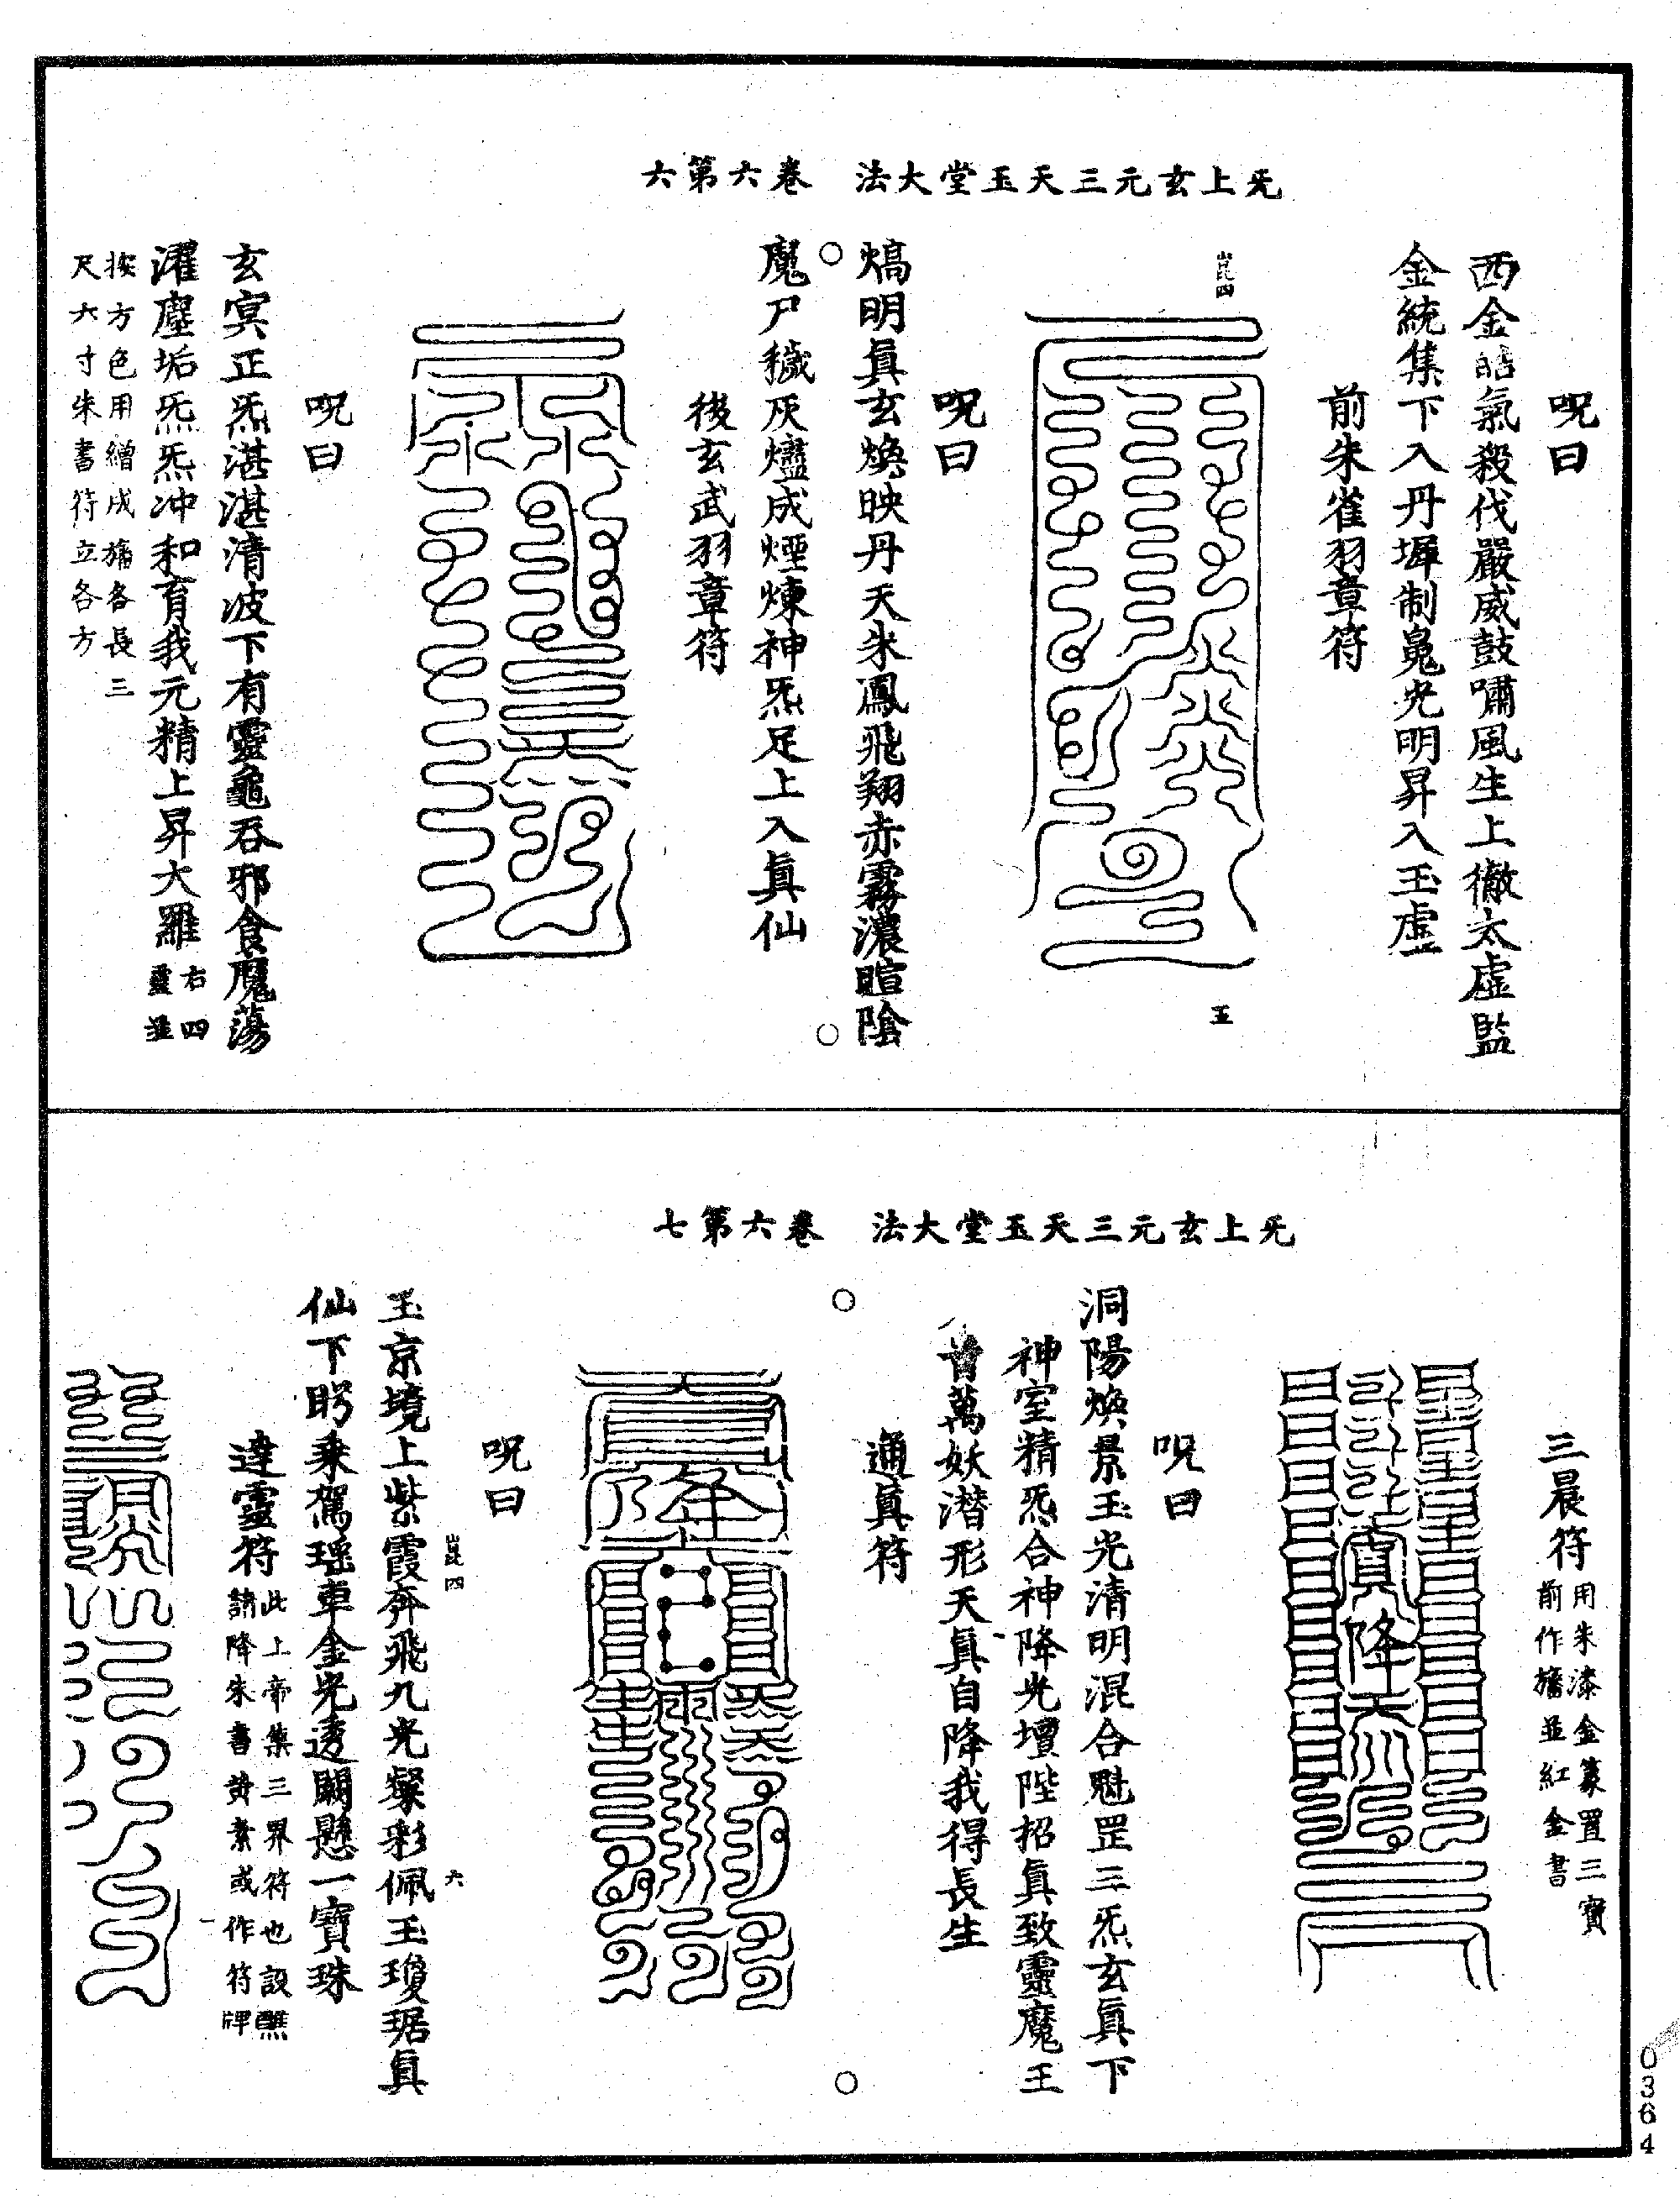 无上玄元三天玉堂大法　卷六第六
呪曰
西金皓氣殺伐嚴威鼓嘯風生上徹太虛監
金統集下入丹墀制鬼光明昇入玉虛
前朱雀羽章符
崑四
五
呪曰
熇明眞玄煥映丹天朱鳳飛翔赤霧濃暄陰
魔尸穢灰燼成煙煉神炁足上入眞仙
後玄武羽章符
呪曰
玄冥正炁湛湛清波下有靈龜吞邪食魔蕩
濯塵垢炁炁冲和育我元精上昇大羅右四
靈並
按方色用繒成旛各長三
尺六寸朱書符立各方
无上玄元三天玉堂大法　卷六第七
三晨符用朱漆金篆置三寶
前作旛並紅金書
呪曰
洞陽煥景玉光清明混合魁罡三炁玄眞下
神室精炁合神降光壇陛招眞致靈魔王
首萬妖潜形天眞自降我得長生
通眞符
呪曰
崑四
六
玉京境上紫霞奔飛九光粲彩佩玉瓊琚眞
仙下眄乘駕瑶車金光透闕懸一寶珠
達靈符此上帝集三界符也設醮
請降朱書黄素或作符牌
0364